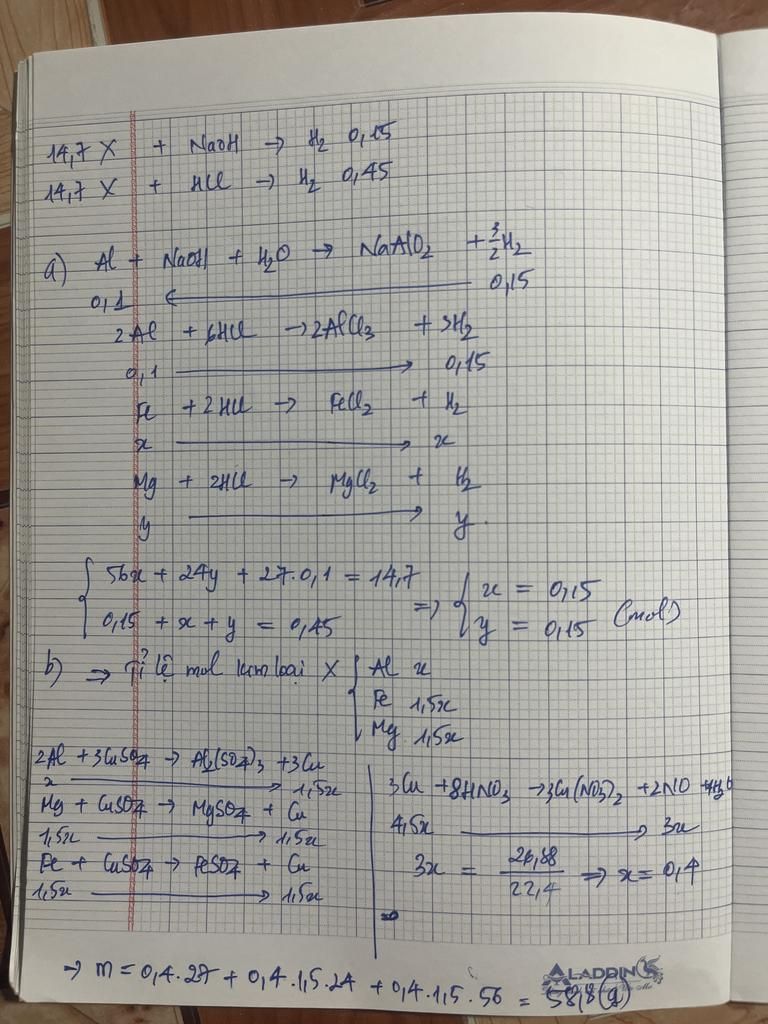 14,7 X + NaOH → H₂ 0,15
14,7 X + HCl → H₂ 0,45
a) Al + NaOH + H₂O → NaAlO₂ + 3/2 H₂
0,1 ← 0,15
2Al + 6HCl → 2AlCl₃ + 3H₂
0,1 → 0,15
Fe + 2HCl → FeCl₂ + H₂
x → x
Mg + 2HCl → MgCl₂ + H₂
y → y
{ 56x + 24y + 27.0,1 = 14,7
0,15 + x + y = 0,45
=> { x = 0,15
y = 0,15 (mol)
b) => Tỉ lệ mol kim loại X { Al x
Fe 1,5x
Mg 1,5x
2Al + 3CuSO₄ → Al₂(SO₄)₃ + 3Cu
x → 1,5x
Mg + CuSO₄ → MgSO₄ + Cu
1,5x → 1,5x
Fe + CuSO₄ → FeSO₄ + Cu
1,5x → 1,5x
3Cu + 8HNO₃ → 3Cu(NO₃)₂ + 2NO + 4H₂O
4,5x → 3x
3x = 26,88/22,4 => x = 0,4
→ m = 0,4.27 + 0,4.1,5.24 + 0,4.1,5.56 = 58,8(g)
ALADDIN